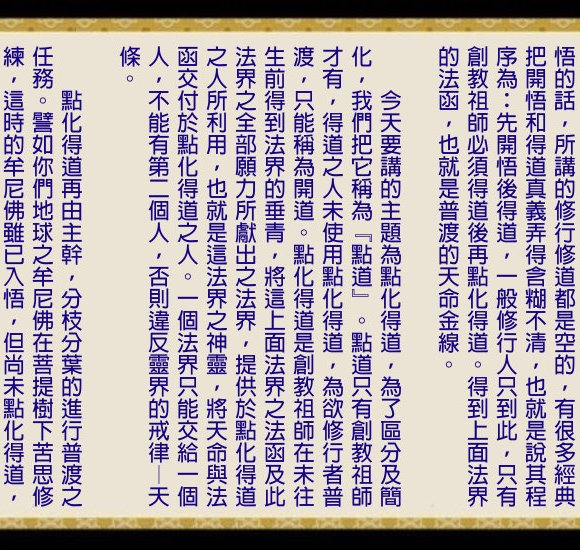 悟的話，所謂的修行修道都是空的，有很多經典
把開悟和得道真義弄得含糊不清，也就是說其程
序為：先開悟後得道，一般修行人只到此，只有
創教祖師必須得道後再點化得道。得到上面法界
的法函，也就是普渡的天命金線。
今天要講的主題為點化得道，為了區分及簡
化，我們把它稱為『點道』。點道只有創教祖師
才有，得道之人未使用點化得道，為欲修行者普
渡，只能稱為開道。點化得道是創教祖師在未往
生前得到法界的垂青，將這上面法界之法函及此
法界之全部願力所獻出之法界，提供於點化得道
之人所利用，也就是這法界之神靈，將天命與法
函交付於點化得道之人。一個法界只能交給一個
人，不能有第二個人，否則違反靈界的戒律─天
條。
點化得道再由主幹，分枝分葉的進行普渡之
任務。譬如你們地球之牟尼佛在菩提樹下苦思修
練，這時的牟尼佛雖已入悟，但尚未點化得道，